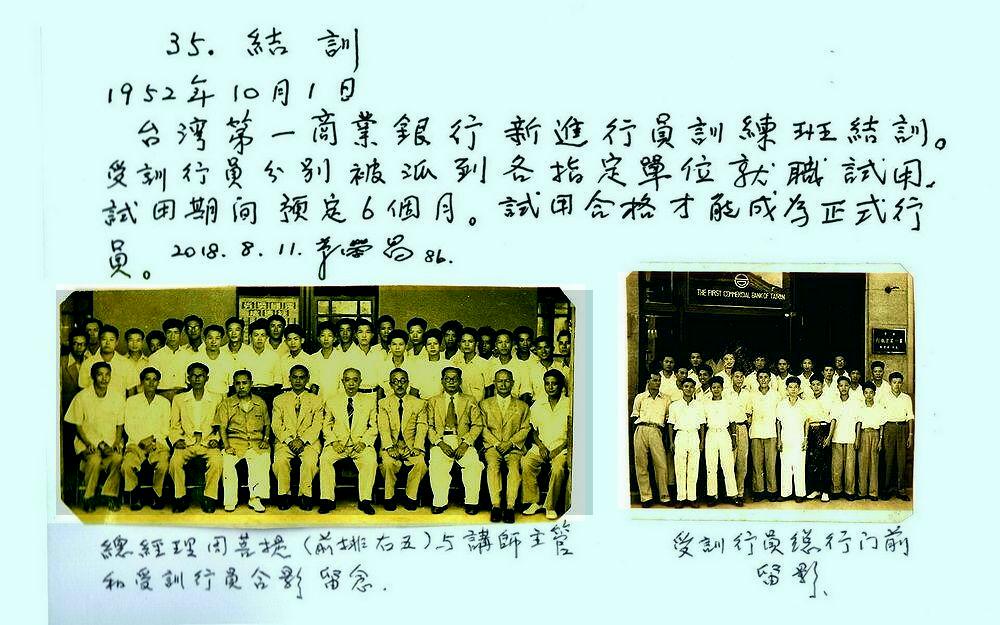 35. 結訓
1952年10月1日
台湾第一商業銀行新進行員訓練班結訓。
受訓行員分别被派到各指定單位就職試用.
試用期间預定6個月。試用合格才能成为正式行
員。2018.8.11. 榮昌 86.
THE FIRST COMMERCIAL BANK OF TAIWAN
總經理周菩提(前排右五)与講師主管
和受訓行員合影留念.
受訓行員總行门前
留影.